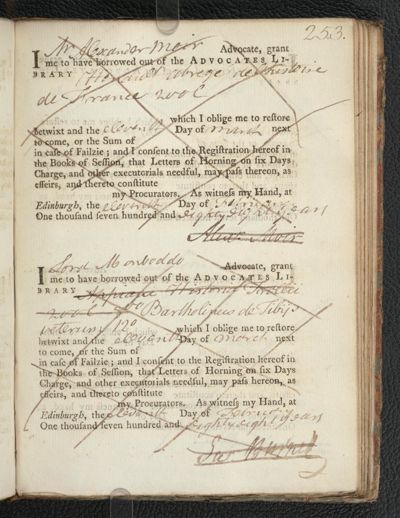 253.
I Mr Alexander Muir Advocate, grant
me to have borrowed out of the ADVOCATES LI-
BRARY Henault abrege de l'histoire
de France 2 vol
which I oblige me to restore
betwixt and the eleventh Day of March next
to come, or the Sum of
in case of Failzie; and I consent to the Registration hereof in
the Books of Session, that Letters of Horning on six Days
Charge, and other executorials needful, may pass thereon, as
effeirs, and thereto constitute
my Procurators. As witness my Hand, at
Edinburgh, the eleventh Day of
One thousand seven hundred and eighty eight years
Alexr Muir
I Lord Monboddo Advocate, grant
me to have borrowed out of the ADVOCATES LI-
BRARY
Bartholinus de Tibijs
veterum 120 which I oblige me to restore
betwixt and the eleventh Day of March next
to come, or the Sum of
in case of Failzie; and I consent to the Registration hereof in
the Books of Session, that Letters of Horning on six Days
Charge, and other executorials needful, may pass hereon, as
effeirs, and thereto constitute
my Procurators. As witness my Hand, at
Edinburgh, the eleventh Day of
One thousand seven hundred and eighty eight years
Burnett